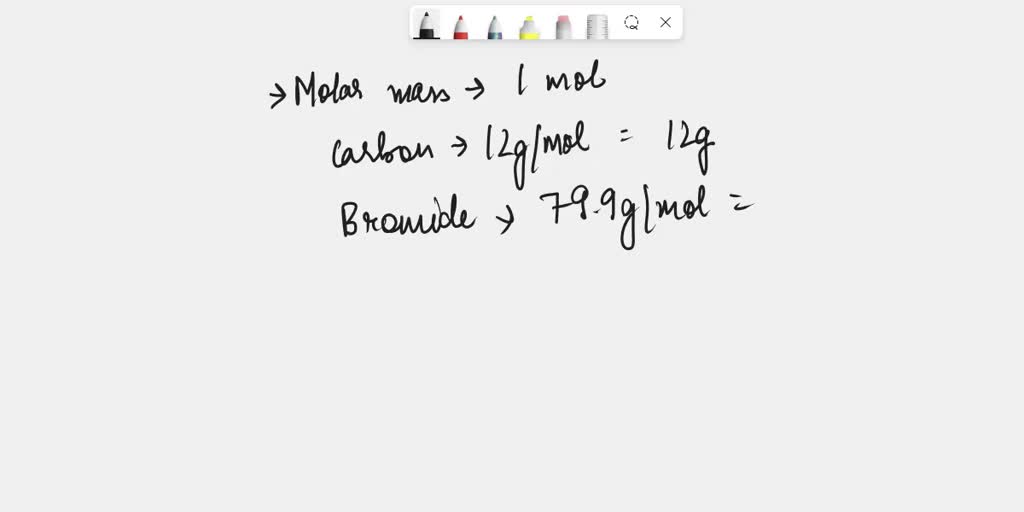 → Molar mass → 1 mol
Carbon → 12g/mol = 12g
Bromide → 79.9g/mol =